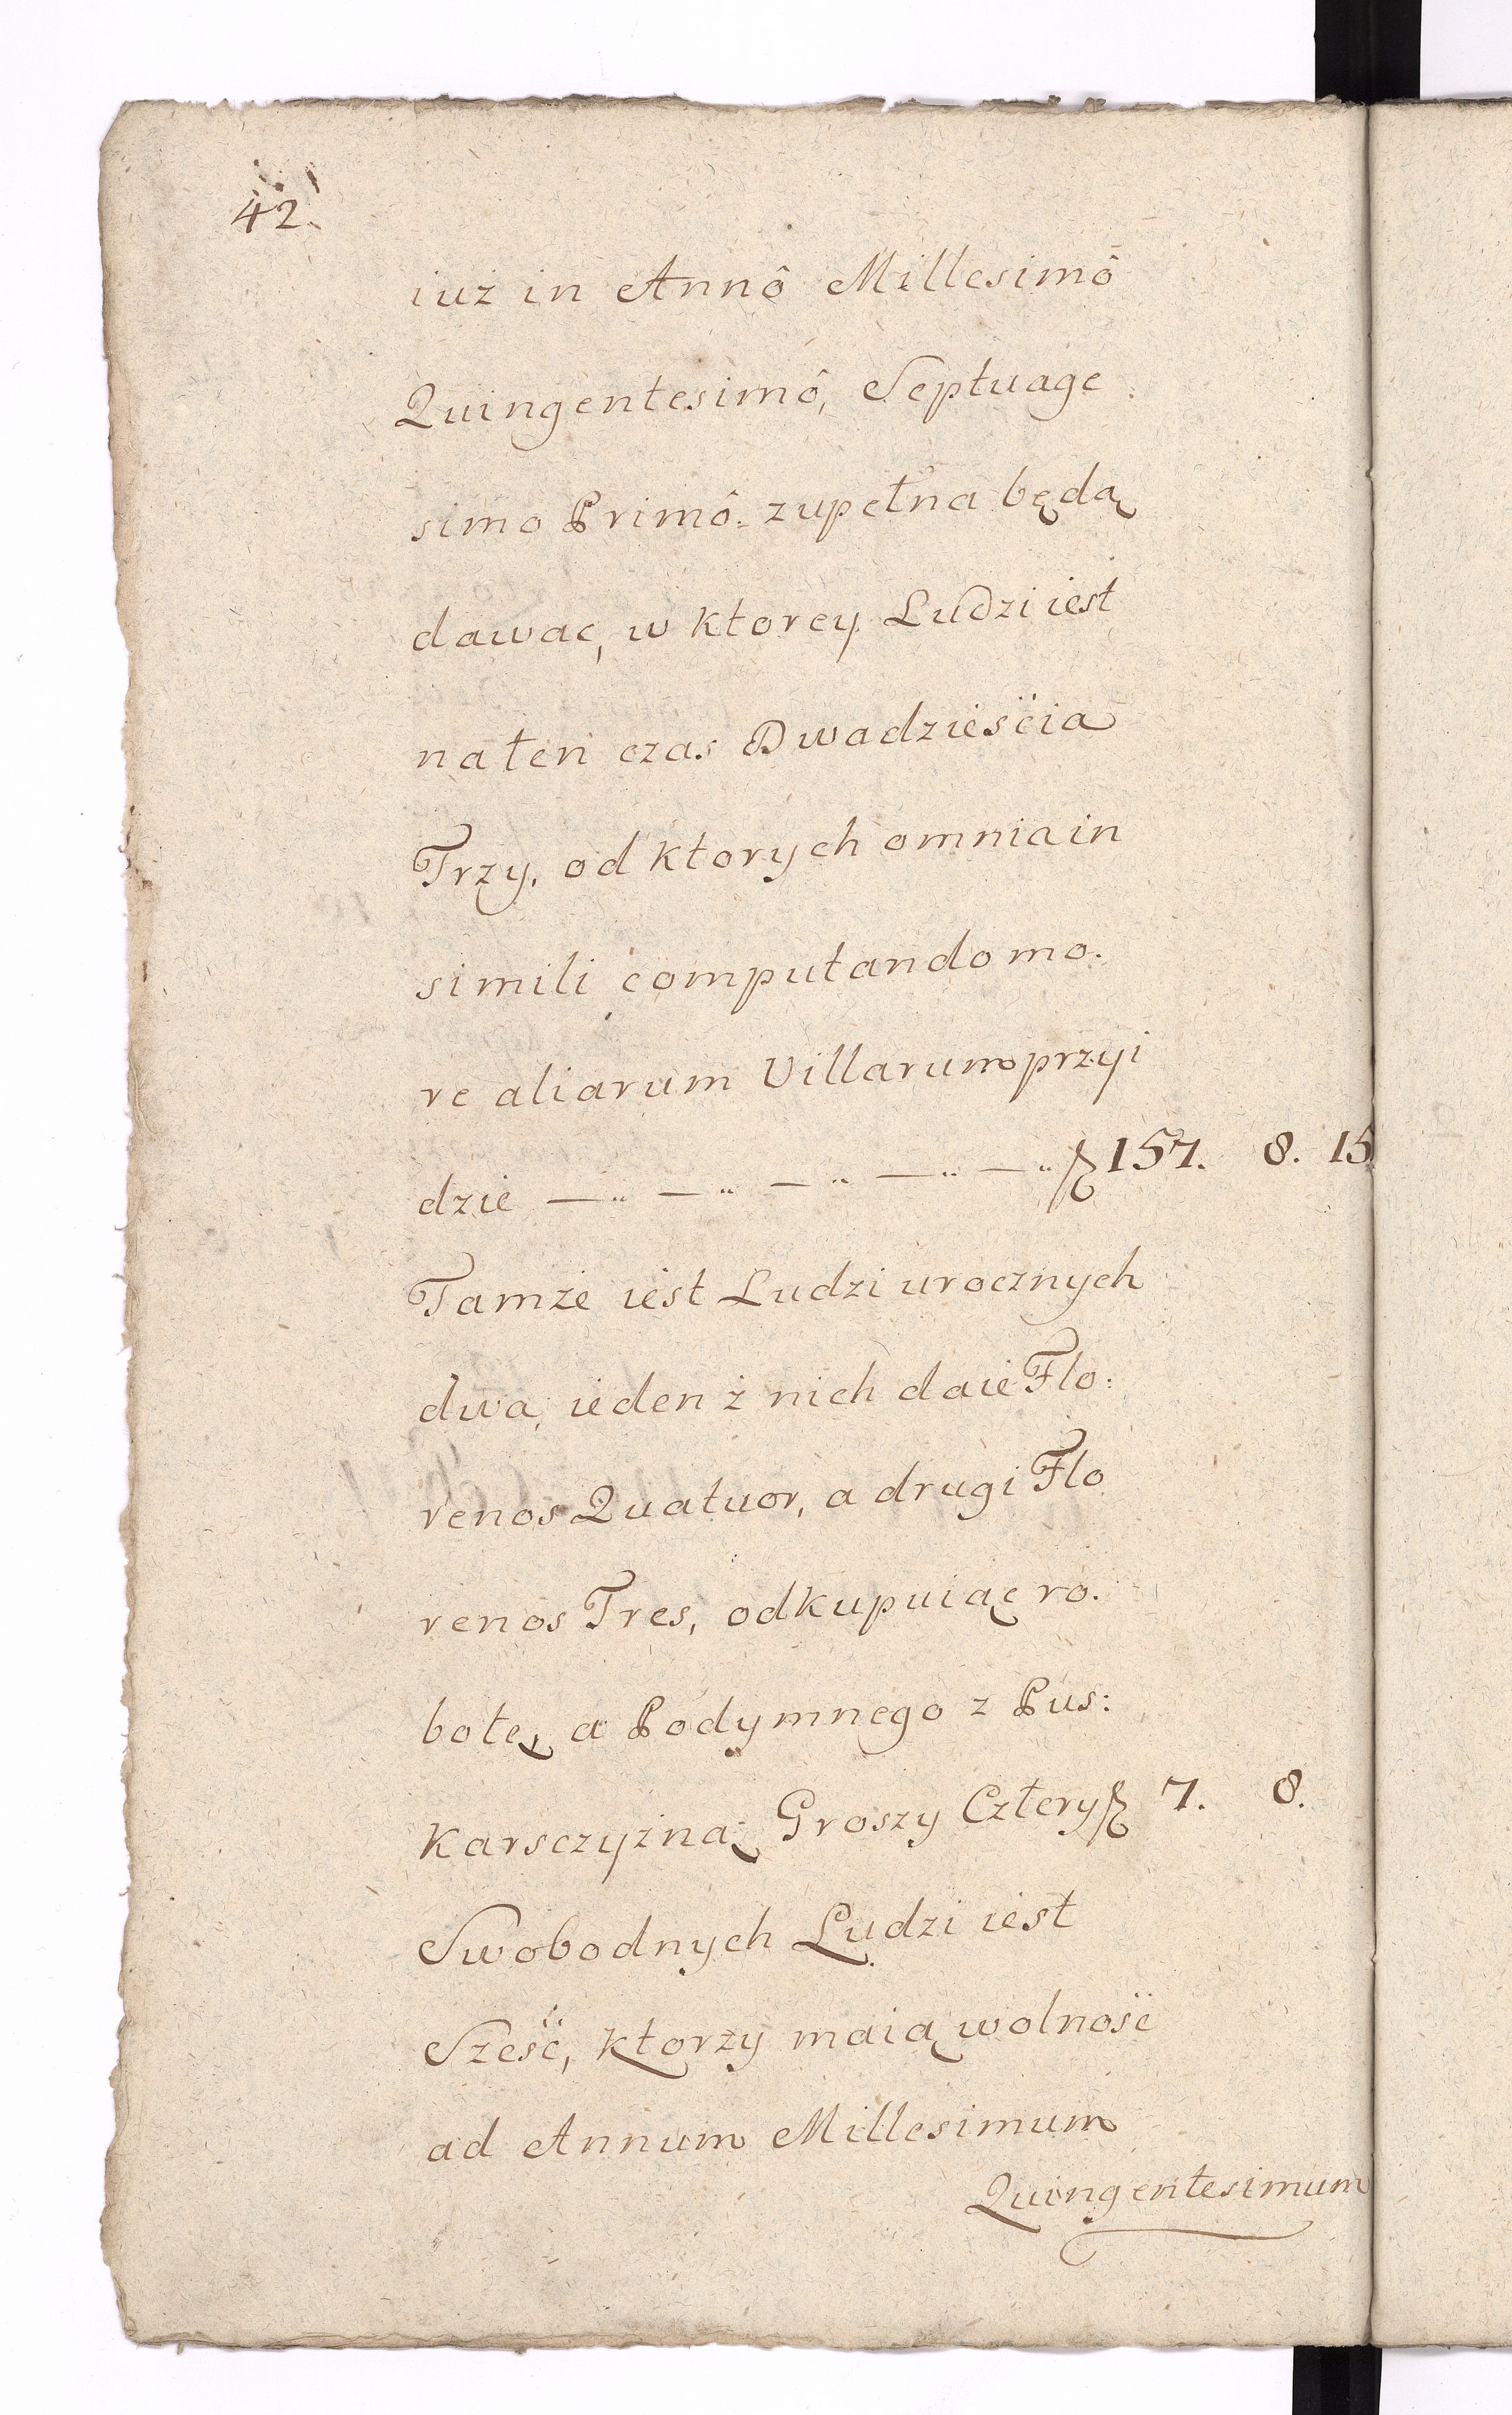 42.
iuż in Annô Millesimô
Quingentesimô, Septuage
simo Primô. zupełna będą
dawac, w ktorey Ludzi iest
na ten czas Dwadzieścia
Trzy, od ktorych omnia in
simili computando mo.
re aliarum Villarum przyi
dzie —.. —.. —.. —.. —.. 157. 8. 15
Tamże iest Ludzi urocznych
dwa, ieden ż nich daie Flo:
renos Quatuor, a drugi Flo
renos Tres, odkupuiąc ro.
botę, a Podymnego z Pus:
karsczyzną Groszy Cztery 7. 8.
Swobodnych Ludzi iest
Sześć, ktorzy maią wolność
ad Annum Millesimum
Quingentesimum